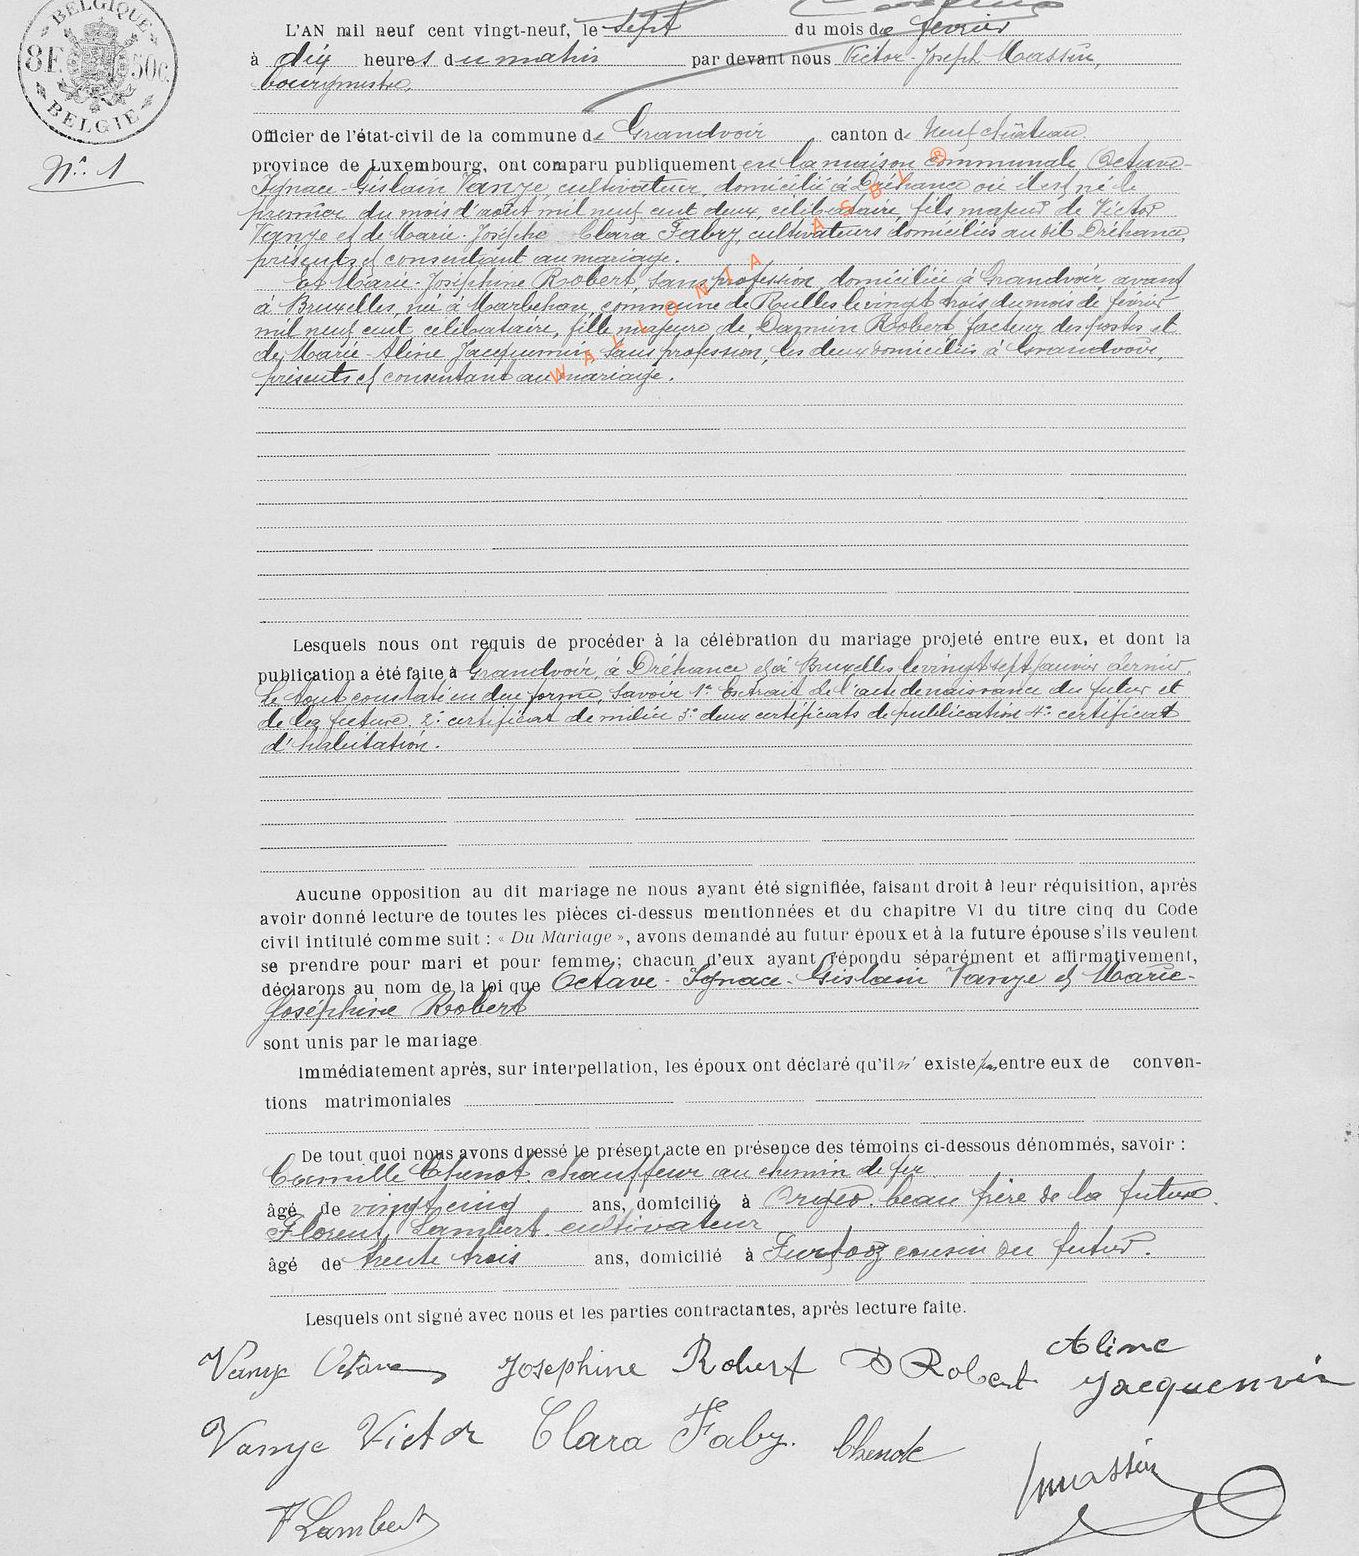 BELGIQUE
8F 50c.
BELGIE
N° 1
L'AN mil neuf cent vingt-neuf, le sept du mois de février
à dix heures du matin par devant nous Victor-Joseph Massin,
bourgmestre,
Officier de l'état-civil de la commune de Grandvoir, canton de Neufchâteau
province de Luxembourg, ont comparu publiquement en la maison communale Octave-
Ignace-Gislain Vanye, cultivateur, domicilié à Dréhance où il est né le
premier du mois d'août mil neuf cent deux, célibataire, fils majeur de Victor
Vanye et de Marie-Josèphe Clara Fabry, cultivateurs domiciliés au dit Dréhance,
présents et consentant au mariage.
Et Marie-Joséphine Robert, sans profession, domiciliée à Grandvoir, avant
à Bruxelles, née à Marbehan, commune de Rulles le vingt trois du mois de février
mil neuf cent, célibataire, fille majeure de Damien Robert, facteur des postes et
de Marie-Aline Jacquemin, sans profession, les deux domiciliés à Grandvoir,
présents et consentant au mariage.
WALLONIA ASBL ®
Lesquels nous ont requis de procéder à la célébration du mariage projeté entre eux, et dont la
publication a été faite à Grandvoir, à Dréhance et à Bruxelles le vingt sept janvier dernier
Le tout constaté en due forme, savoir 1° Extrait de l'acte de naissance du futur et
de la future 2° certificat de milice 3° deux certificats de publication 4° certificat
d'habitation.
Aucune opposition au dit mariage ne nous ayant été signifiée, faisant droit à leur réquisition, après
avoir donné lecture de toutes les pièces ci-dessus mentionnées et du chapitre VI du titre cinq du Code
civil intitulé comme suit : « Du Mariage », avons demandé au futur époux et à la future épouse s'ils veulent
se prendre pour mari et pour femme ; chacun d'eux ayant répondu séparément et affirmativement,
déclarons au nom de la loi que Octave-Ignace-Gislain Vanye et Marie-
Joséphine Robert
sont unis par le mariage
Immédiatement après, sur interpellation, les époux ont déclaré qu'il n'existe pas entre eux de conven-
tions matrimoniales
De tout quoi nous avons dressé le présent acte en présence des témoins ci-dessous dénommés, savoir :
Camille Chenot, chauffeur au chemin de fer
âgé de vingt cinq ans, domicilié à Orgeo, beau frère de la future.
Florent Lambert, cultivateur
âgé de trente trois ans, domicilié à Furfooz cousin du futur.
Lesquels ont signé avec nous et les parties contractantes, après lecture faite.
Vanye Octave Josephine Robert D Robert Aline Jacquemin
Vanye Victor Clara Faby. Chenot
Jmassin
F Lambert